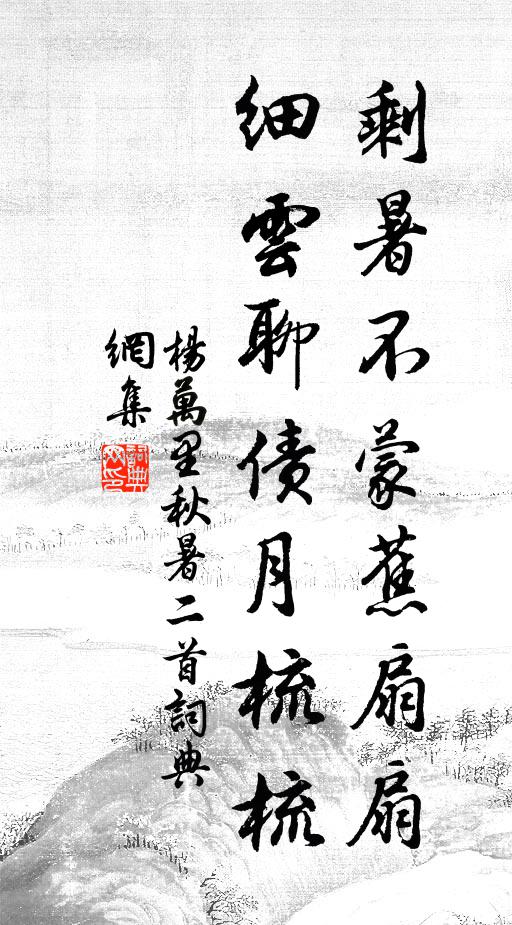 剩暑不蒙蕉扇扇
細雲聊債月梳梳
楊萬里秋暑二首詞典
網集
詞典
网印